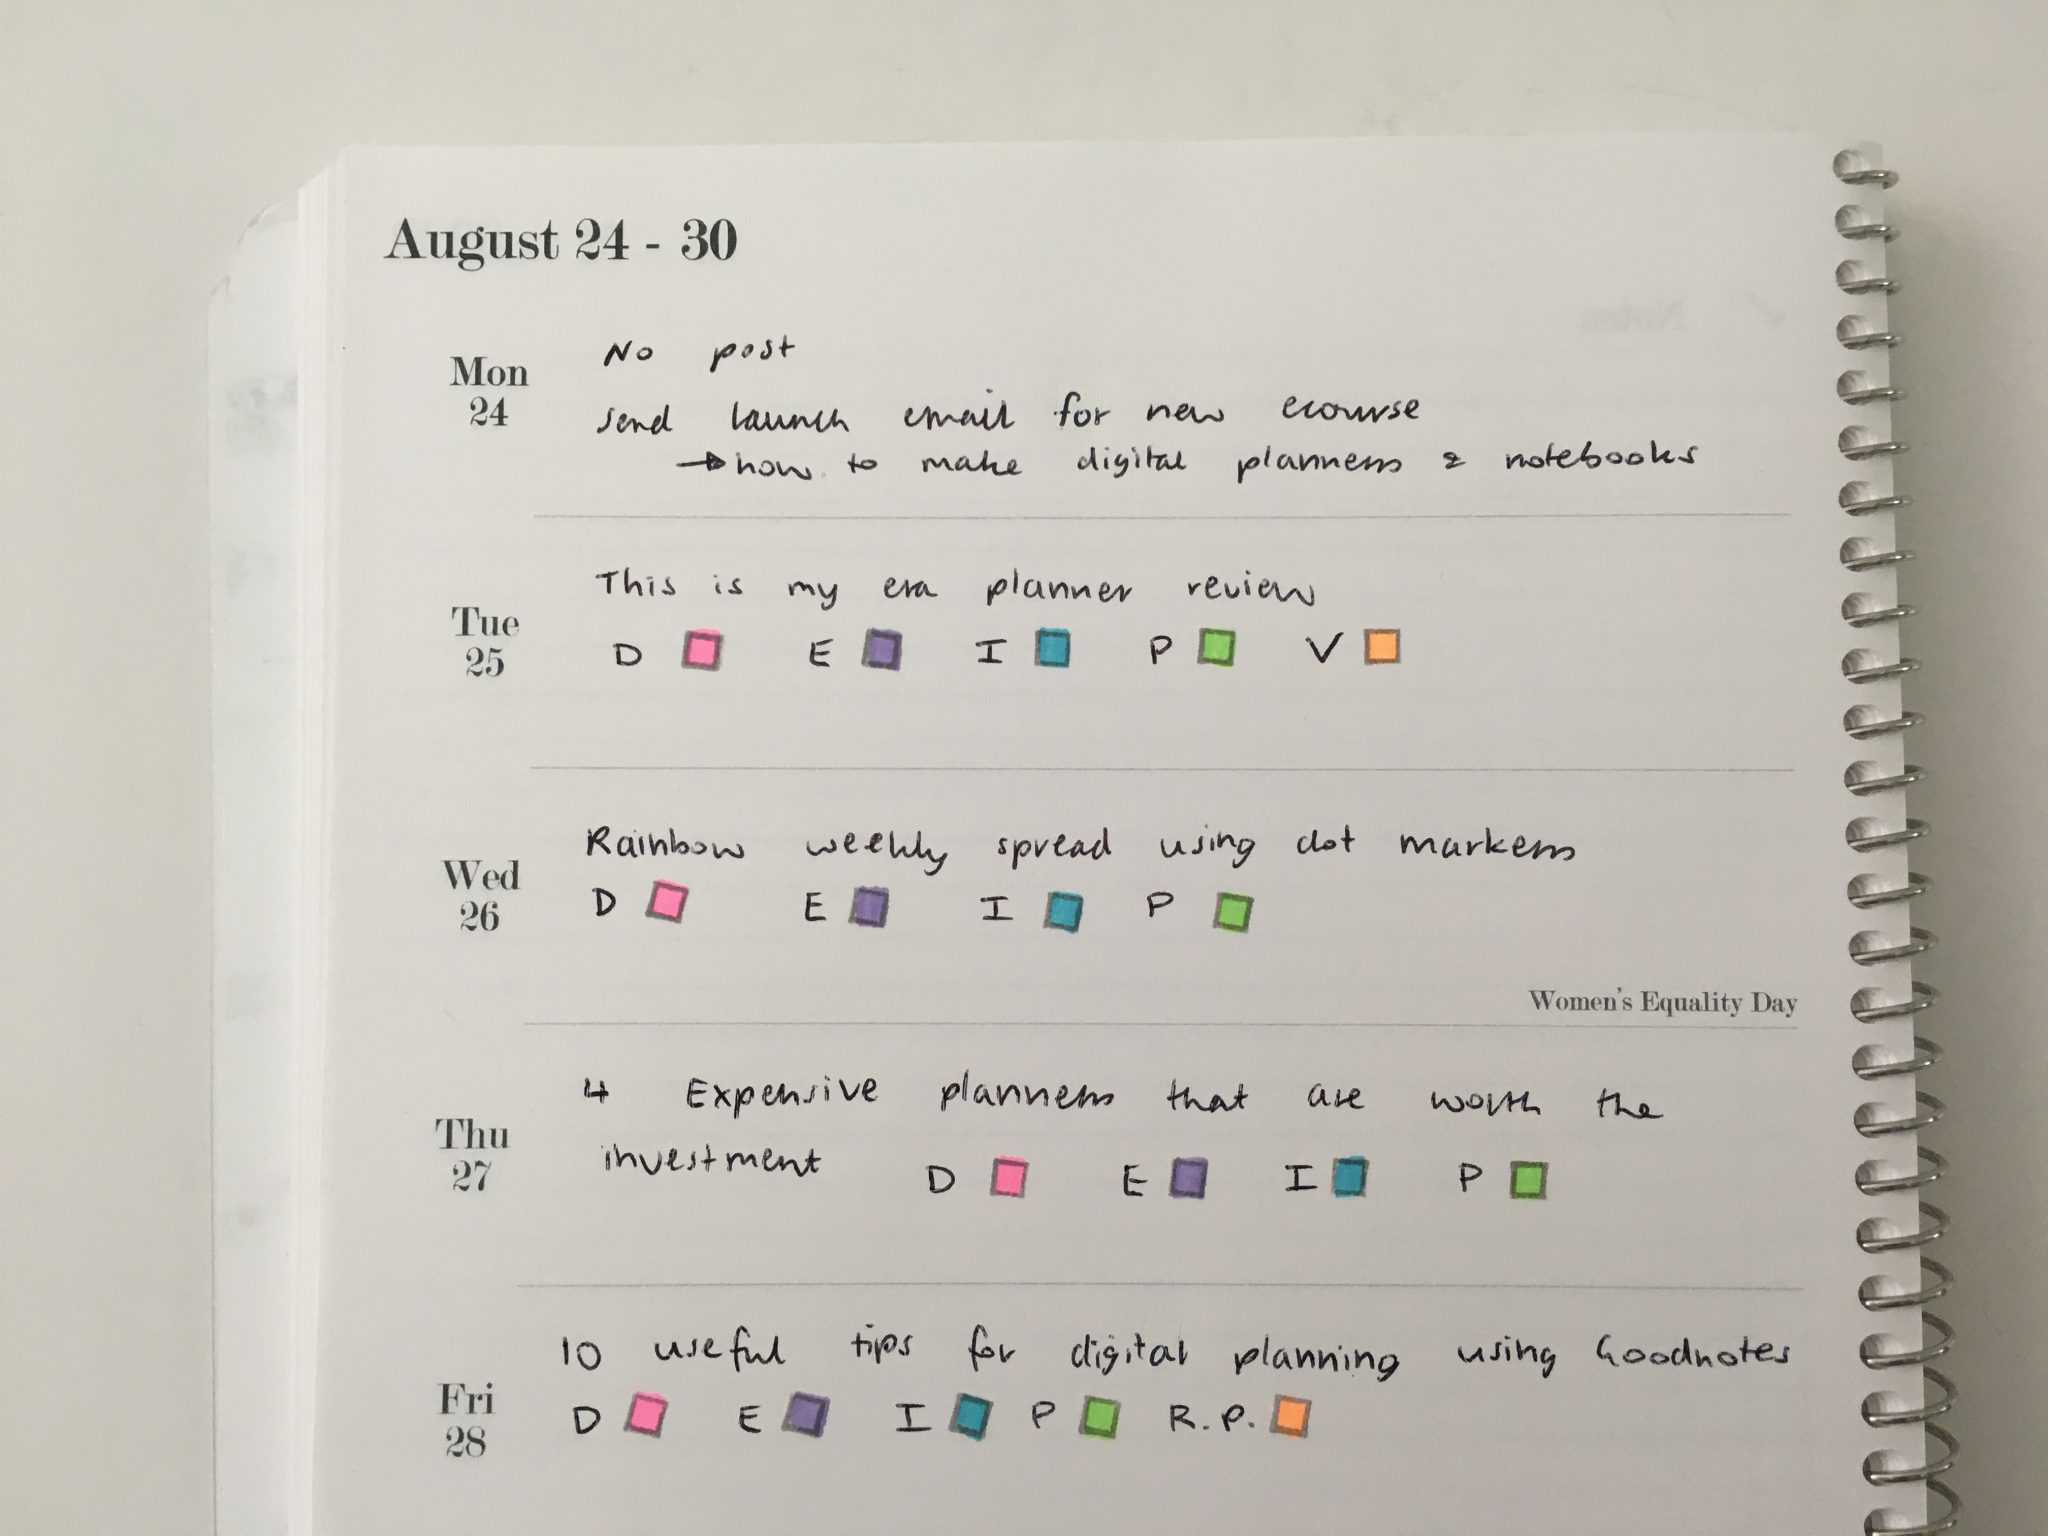 August 24 - 30
Mon
24
No post
send launch email for new ecourse
→ how to make digital planners & notebooks
Tue
25
This is my era planner review
D E I P V
Wed
26
Rainbow weekly spread using dot markers
D E I P
Women's Equality Day
Thu
27
4 Expensive planners that are worth the
investment D E I P
Fri
28
10 useful tips for digital planning using Goodnotes
D E I P R.P.